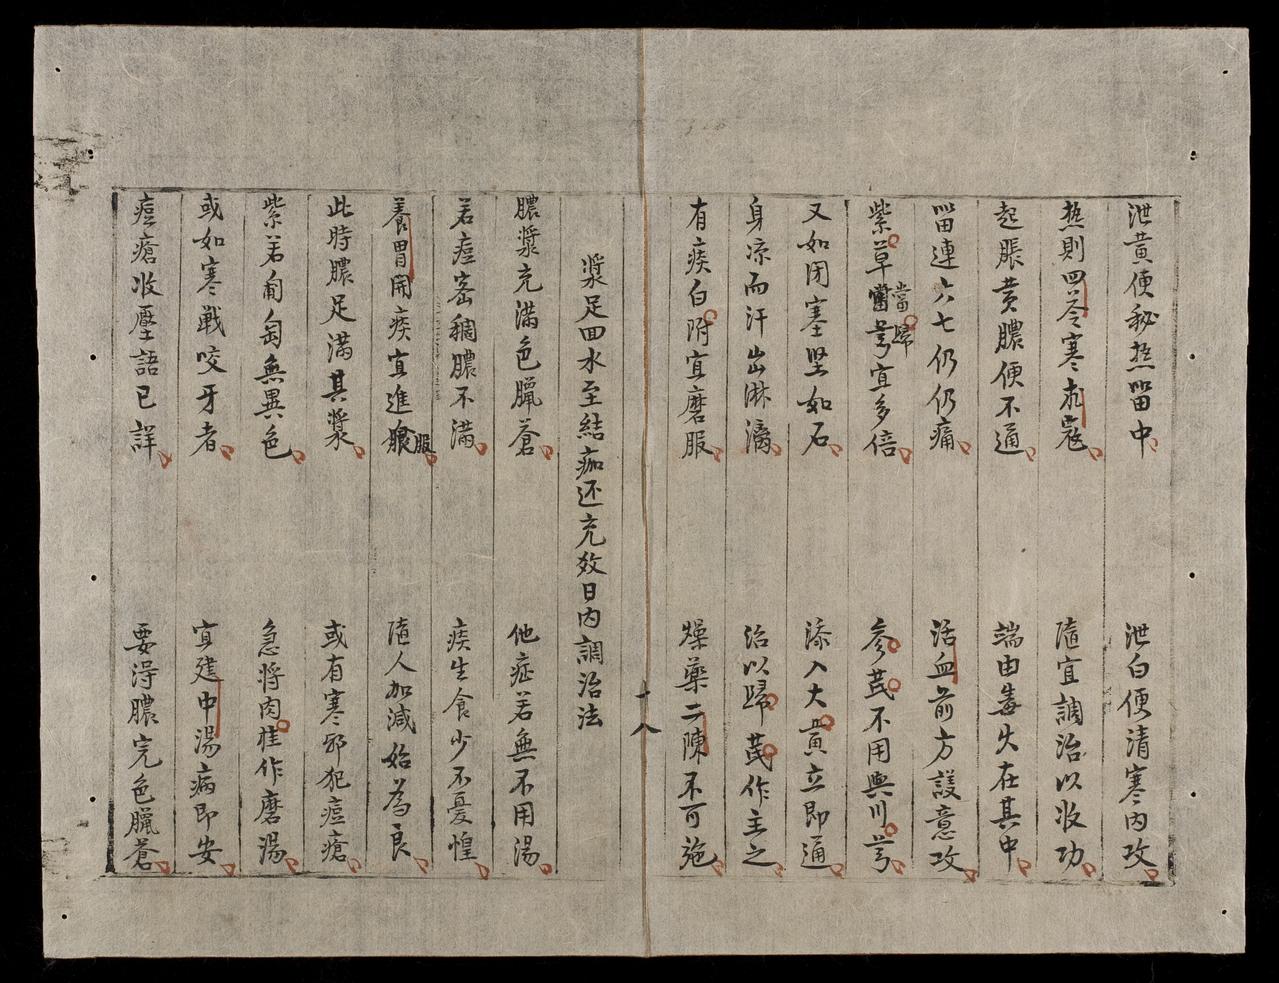 泄黄便秘热留中 泄白便清寒内攻
热则四苓寒敖寇 随宜調治以收功
起脹黄膿便不通 端由毒火在其中
留連六七仍仍痛 活血前方設意攻
紫草當歸芎宜多倍 參芪不用與川芎
又如闭塞坚如石 添入大黄立即通
身凉而汗出淋漓 治以歸芪作主之
有痰白附宜磨服 燥藥二陳不可施
十八
漿足回水至結痂还充效日内調治法
膿漿充满色臘蒼 他症若無不用湯
若痘密稠膿不满 痰生食少不憂惶
養胃開痰宜進服 随人加減始為良
此時膿足满其漿 或有寒邪犯痘瘡
紫若匍匐無異色 急將肉桂作磨湯
或如寒戰咬牙者 宜建中湯病即安
痘瘡收壓語已詳 要淂膿完色臘蒼